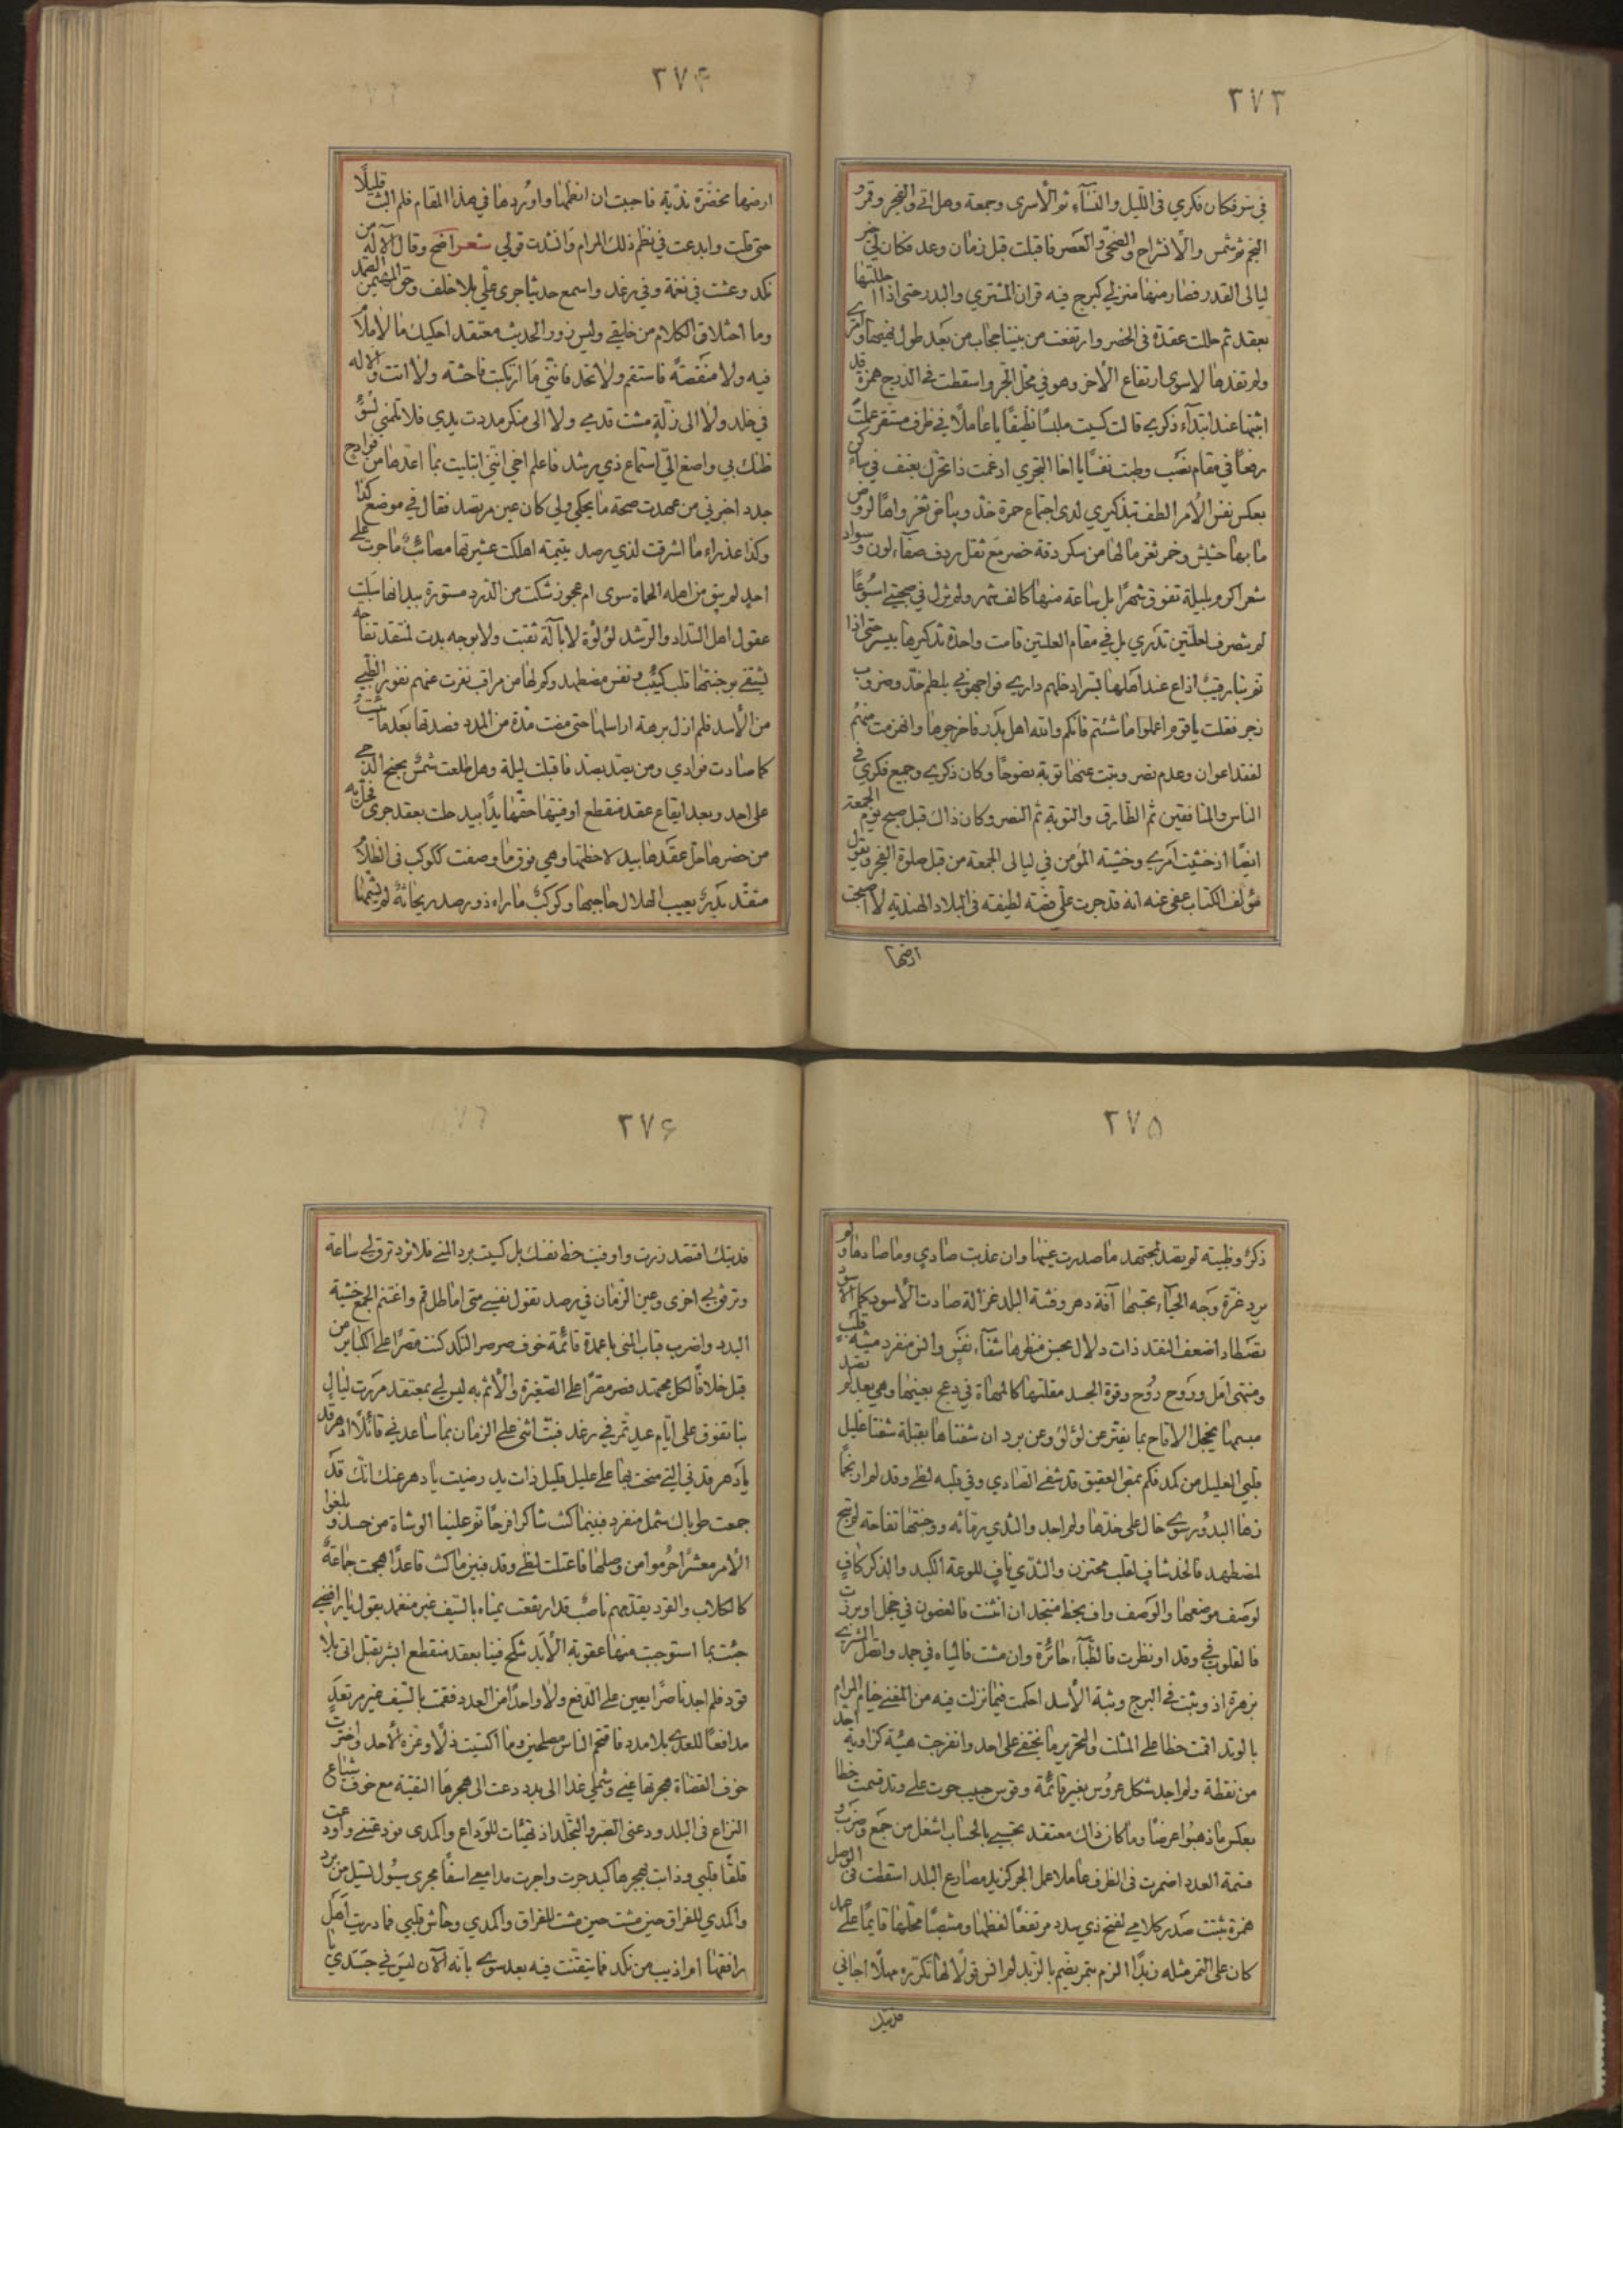 ٢٧٣
في نتوفكان فكري في الليل والنساء ثم الأسرى وجمعة وهل اتى والفجر وقمر
النجم ثم شمس والانشراح والضحى والعصر فاقبلت قبل زمان وعد فكان لي خير
ليالي القدر فصار منها منزلي كبرج فيه قران المشتري والبدر حتى اذا حللتها
بعقد ثم حللت عقدة في الخصر وارتفعت من بيننا حجاب من بعد طول
ولم تفدها لا سوى ارتفاع الأخر وهو في محل الجر واسقطت في الدرج همزة قد
اجتها عند ابتداء ذكري قالت كسيت ملبسا نظيفا يا عاملا في ظرف مستقر عملت
رفعا في مقام نصب وطبت نفسا يا اخا التجري ادغمت ذا تحرك بعنف في ساكن
بعكس نفس الأمر الطف بتذكيري لدى اجتماع حمرة خد وبياض ثغر واها لروض
ما بها حشيش وخمر ثغر مالها من سكر دقة خصر مع ثقل ردف صفاء لون وسواد
شعر اكرم بليلة تفوق شهرا بل ساعة منها كالف شهر ولم تزل في صحبتي اسبوعا
لم ينصرف لعلتين تدري بل في مقام العلتين قامت واحدة تذكيرها بيسر حتى اذا
نم بنا رقيب اذاع عند اهلها بسر ادخلهم داري فواجهوني بلطم خد وضروب
زجر فقلت يا قوم اعملوا ما شئتم فانكم والله اهل بدر فاخرجوها وانهزمت منهم
لفقد اعوان وعدم نصر وتبت عنها توبة نصوحا وكان ذكري وجميع فكري في
الناس والمنافقين ثم الطارق والتوبة ثم النصر وكان ذاك قبل صبح يوم الجمعة
ايضا اذ خشيت امري وخشية المؤمن في ليالي الجمعة من قبل صلوة الفجر ويقول
مؤلف الكتاب عفى عنه انه قد جرت علي قصة لطيفة في البلاد الهندية لا اصبحت
ارضها
٢٧۴
ارضها مخضرة نديّة فاحببت ان انظمها واوردها في هذا المقام فلم البث قليلًا
حتى قلت وابدعت في نظم ذلك المرام وانشدت قولي شعر افصح وقال الآله من
نكد وعشت في نعمة وفي رغد واسمع حديثا جرى علي بلا خلف وحق المهيمن الصمد
وما اختلاق الكلام من خليقتي وليس زور الحديث معتقد احكيك ما لا ملاك
فيه ولا منقصة فاستقم ولا تحد فانني ما ارتكبت فاحشة ولا اتت والاله
في خلد ولا الى زلة مشت قدمي ولا الى منكر مددت يدي فلا تلمني لسوء
ظنك بي واصغ الي استماع ذي رشد فاعلم اخي انني ابتليت بما اعدها من فوادح
جدد اخبرني من عهدت صحة ما يحكي ولي كان عين مرتصد فقال في موضع كذا
وكذا عذراء ما اشرقت لذي رصد يتيمة اهلكت عشيرتها مصائب ما جرت على
احد لم يبق من اهله الحماة سوى ام عجوز شكت من الدرد مستورة بيد انها سلبت
عقول اهل السداد والرشد لؤلؤة لا بآلة ثقبت ولا بوجه بدت لمنتقد تفاحه
يشتفي بوجنتها قلب كئيب ونفس مضطهد وكم لها من مراقب نفرت عنهم نفور الظبي
من الأسد فلم ازل برهة اراسلها حتى مضت مدة من المدد فصدتها بعد ما نات
كما صادت فوادي ومن يصد يصد فاقبلت ليلة وهل طلعت شمس بجنح الدجى
على احد وبعد ايقاع عقد منقطع اوفيتها حقها يدا بيد حلت بعقد جرى
من خصرها حل عقدها بيد لاحظتها وهي فوق ما وصفت كالكوكب في الظلام
متقد بدر يعيب الهلال حاجبها وكوكب ما راه ذو رصد ريحانة لم يشمها
٢٧۵
ذكر وظبية لم يصد لمجتهد ما صدرت عينها وان عذبت صادي وما صادها ولم
يرد غرة وجه الحياء بحبتها آفة دهر وفتنة البلد غزالة صادت الأسود كما الأسود
تصطاد اضعف النقد ذات دلال بحسن منظرها شفاء نفس وانس منفرد منية قلب
ومنتهى امل وروح روح وقوة الجسد مقلتها كالمهاة في دعج بعينها وهي بعد لم تصد
مبسمها يخجل الاقاح بما يفتر عن لؤلؤ وعن برد ان شفتاها بقبلة شفتا غليل
قلبي العليل من كمد فكم بمص العقيق قد شفي الصادي وفي قلبه لظى وقد لم ار نجما
زها البدور سوى خال على خدها ولم اجد والثدي رمانة ووجنتها تفاحة لم تبح
لمضطهد فالخد شاف لقلب محتزن والثدي ناف للوعة الكبد والذكر كاف
لوصف موضعها والوصف واف بخط منتجد ان انثنت فالغصون في خجل او برزت
فالقلوب في وقد او نظرت فالظباء حائرة وان مشت فالمياه في جمد واتصل المشتري
بزهرة اذ وثبت في البرج وثبة الأسد احكمت فيما نزلت فيه من المغنى خيام المرام
بالوتد اقمت خطا على المثلث والتحرير ما يختفي على احد وانفرجت هيئة كزاوية احد
من نقطة ولم اجد شكل عروس بغير قائمة وقوس جيب حوت على وتد قسمت خطا
بعكس ما ذهبوا عرضا وما كان ذاك معتقد بحسبي بالحساب اشغل من جمع وضرب و
قسمة العدد اضمرت في الظرف عاملا عمل الجر كزيد مصارع البلد اسقطت في الوصل
همزة تبتت صدر كلامي لفتح ذي سدد مرتفعا لفظها ومنتصبا محلها قايما على عمد
كان على التمر مثله زبدا الزم بتمر يضم بالزبد لم انس قولا لها تكرره مهلا اجاني
فديتك
٢٧۶
فديتك اقتصد زرت واوفيت حظ نفسك بل كسيت برد المنى فلا تزد ترق لي ساعة
وترفق بي اخرى وعين الزمان في رصد تقول نفسي متى اماطل قم واغتنم الجمع خشية
البدد واضرب قباب المنى باعمدة قائمة خوف صرصر النكد كنت مصرا على الكبائر من
قبل خلافا لكل مجتهد فصر مصرا على الصغيرة والأثم به ليس لي بمعتقد مرت ليال
بنا تفوق على ايام عيد تمر في رغد فبت اثني على الزمان بما ساعدني قائلا ادهر قد
يا دهر قدني التي منحت بها على عليل قليل ذات يد رضيت يا دهر عنك انك قد
جمعت طوبى لك شمل منفرد فبينما كنت شاكرا فرحا نم علينا الوشاة من حسد و بلغوا
الأمر معشرا حرموا من وصلها فاعتلت لظى وقد فبينما كنت قاعدا هجمت جماعة
كالكلاب والقرد يقدمهم ناصب قد ارتفعت يمناه بالسيف غير منغمد يقول يا رافضي
جئت بما استوجبت منها عقوبة الأبد تنكح فينا بعقد منقطع ابشر بقتل اتى بلا
قود فلم اجد ناصرا يعين على الدفع ولا واحدا من العدد فقمت بالسيف غير مرتعد
مدافعا للعدى بلا مدد فاقتحم الناس مصلحين وما اكتسبت ذلا وعزة الأحد واخترت
خوف القضاة هجرتها عني وشملي غدا الى بدد دعت الى هجرها التقية مع خوف شياع
النزاع في البلد ودعني الصبر والتجلد اذ تهيئات للوداع واكمدي مودعتني واودعت
قلقا قلبي وذابت بهجرها كبد جرت واجرت مدامعي اسفا مجرى سيول تسيل من برد
واكمدي للفراق حين مشت حين مشت للفراق واكمدي وحاش قلبي فما دريت اهل
رافقها ام اذيب من نكد فما تيقنت فيه بعد سوى بانه الآن ليس في جسدي